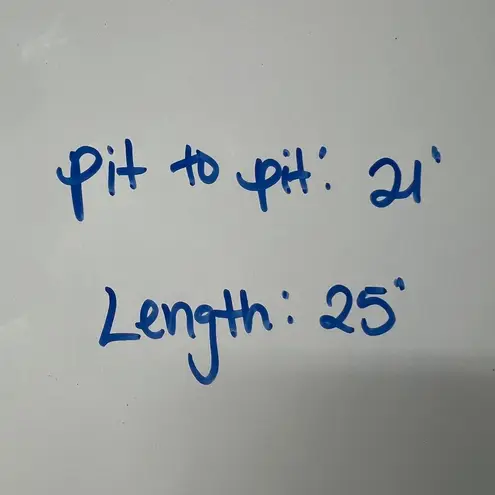 pit to pit: 21'
Length: 25'